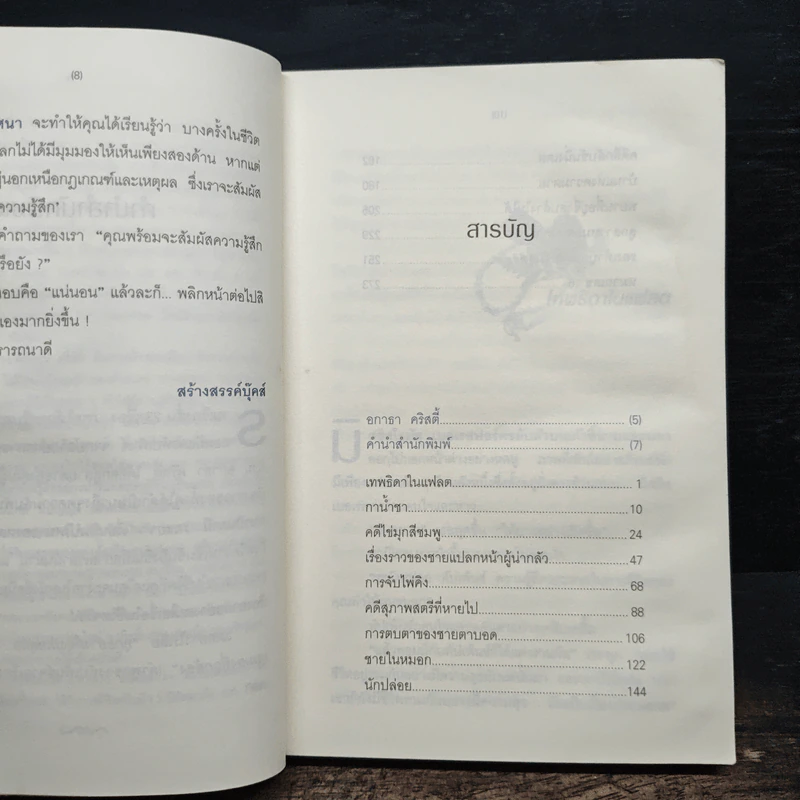 (8)
จะทำให้คุณได้เรียนรู้ว่า บางครั้งในชีวิต
ลกไม่ได้มีมุมมองให้เห็นเพียงสองด้าน หากแต่
นอกเหนือกฎเกณฑ์และเหตุผล ซึ่งเราจะสัมผัส
ความรู้สึก'
คำถามของเรา “คุณพร้อมจะสัมผัสความรู้สึก
รือยัง ?”
อบคือ “แน่นอน” แล้วละก็... พลิกหน้าต่อไปสิ
เองมากยิ่งขึ้น !
ารถนาดี
สร้างสรรค์บุ๊คส์
สารบัญ
อกาธา คริสตี้ (5)
คำนำสำนักพิมพ์ (7)
เทพธิดาในแฟลต 1
กาน้ำชา 10
คดีไข่มุกสีชมพู 24
เรื่องราวของชายแปลกหน้าผู้น่ากลัว 47
การจับไพ่คิง 68
คดีสุภาพสตรีที่หายไป 88
การตบตาของชายตาบอด 106
ชายในหมอก 122
นักปล่อย 144